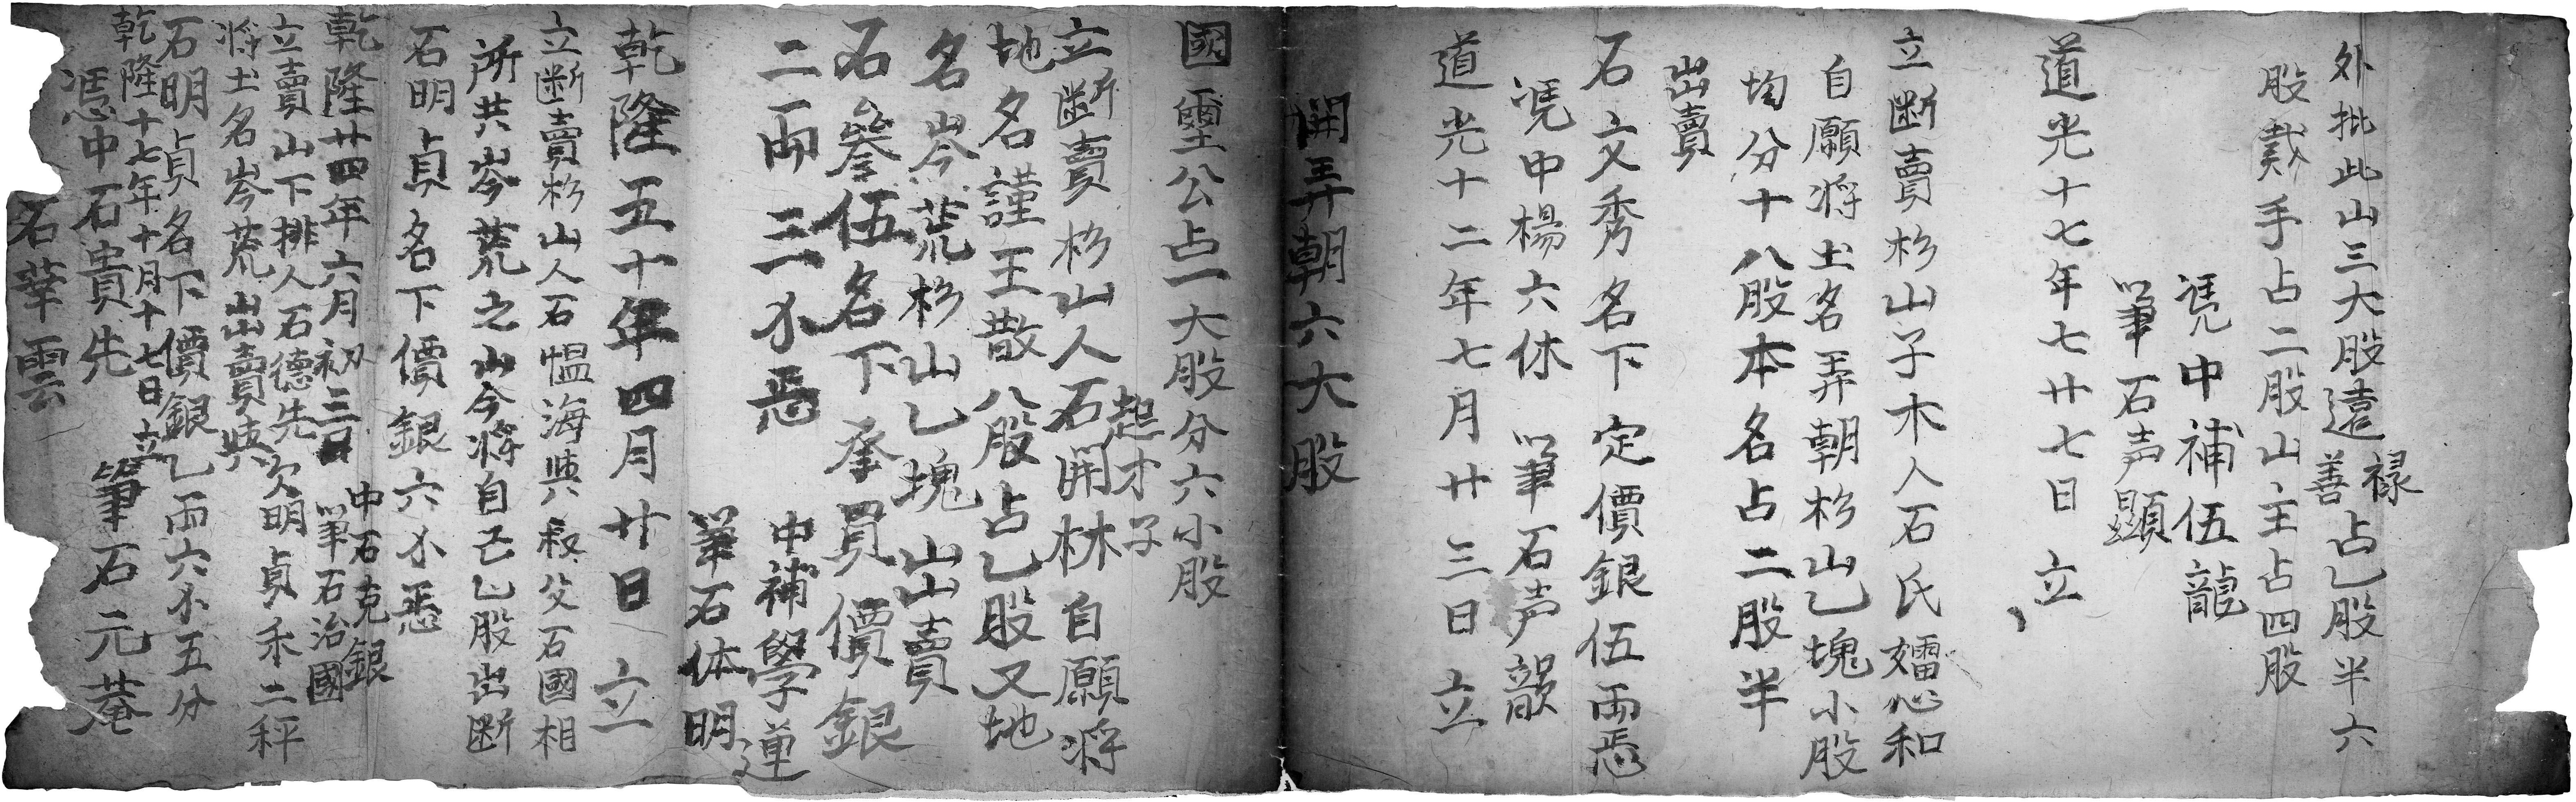 外批此山三大股遠祿善占乚股半六
股栽手占二股山主占四股
凴中補伍龍
筆石声顯
道光十七年七廿七日立
立断賣杉山子木人石氏嬬惢和
自願将土名弄朝杉山乚塊小股
均分十八股本名占二股半
出賣
石文秀名下定價銀伍両悉
凴中楊六休 筆石声韻
道光十二年七月廿三日立
開弄朝六大股
國璽公占一大股分六小股
起才子
立断賣杉山人石開林自願将
地名謹王散八股占乚股又地
名岑荒杉山乚塊出賣
石叄伍名下承買價銀
二両三小悉
中補學運
筆石体明
乾隆五十年四月廿日立
立断賣杉山人石愠海與叔父石國相
所共岑荒之山今將自己乚股出断
石明貞名下價銀六小悉
中石克銀
乾隆廿四年六月初三日 筆石治國
立賣山下排人石德先欠明貞禾二秤
將土名岑荒出賣與
石明貞名下價銀乚両六小五分
乾隆十七年十月十七日立
憑中石貴先 筆石元菴
石華雲